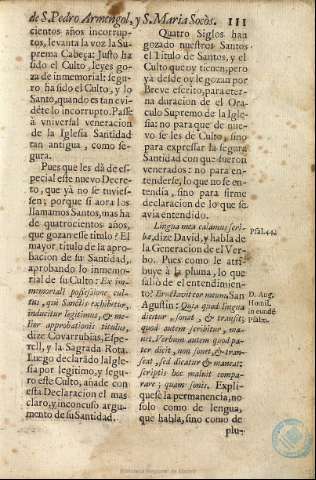 de S. Pedro Armengol, y S. Maria Socós. 111
cientos años incorrup-
tos, levanta la voz la Su-
prema Cabeça: Justo ha
sido el Culto, leyes go-
za de inmemorial: segu-
ro ha sido el Culto, y lo
Santo, quando es tan evi-
déte lo incorrupto. Passe
à vniversal veneracion
de la Iglesia Santidad
tan antigua, como se-
gura.
Pues que les dà de es-
pecial este nuevo Decre-
to, que yà no se tuvies-
sen; porque si aora los
llamamos Santos, mas ha
de quatrocientos años,
que gozan esse titulo? El
mayor titulo de la apro-
bacion de su Santidad,
aprobando lo inmemo-
rial de su Culto: Ex im-
memoriali possessione, cul-
tus, qui Sanctis exhibetur,
inducitur legitimus, & me-
lior approbationis titulus,
dize Covarrubias, Espe-
rell, y la Sagrada Rota.
Luego declarado la Igle-
sia por legitimo, y segu-
ro este Culto, añade con
esta Declaracion el mas
claro, y inconcuso argu-
mento de su Santidad.
Quatro Siglos han
gozado nuestros Santos
el Titulo de Santos, y el
Culto que oy tienen; pero
ya desde oy le gozan por
Breve escrito, para eter-
na duracion de el Ora-
culo Supremo de la Igle-
sia: no para que de nue-
vo se les de Culto, sino
para expressar la segura
Santidad con que fueron
venerados: no para en-
tenderse, lo que no se en-
tendia, sino para firme
declaracion de lo que se
avia entendido.
Lingua mea calamus scri-
bæ, dize David, y habla de
la Generacion de el Ver-
bo. Pues como le atri-
buye à la pluma, lo que
salió de el entendimien-
to? Eructavit cor meum. San
Agustin: Quia quod lingua
dicitur, sonat, & transit;
quod autem scribitur, ma-
net. Verbum autem quod pa-
ter dicit, non sonat, & tran-
seat, sed dicatur & maneat:
scriptis hoc maluit compa-
rare; quam sonis. Expli-
quese la permanencia, no
solo como de lengua,
que habla, sino como de
plu-
Psal. 44.
D. Aug.
Homil.
in eundé
Psalm.
Biblioteca Regional de Madrid